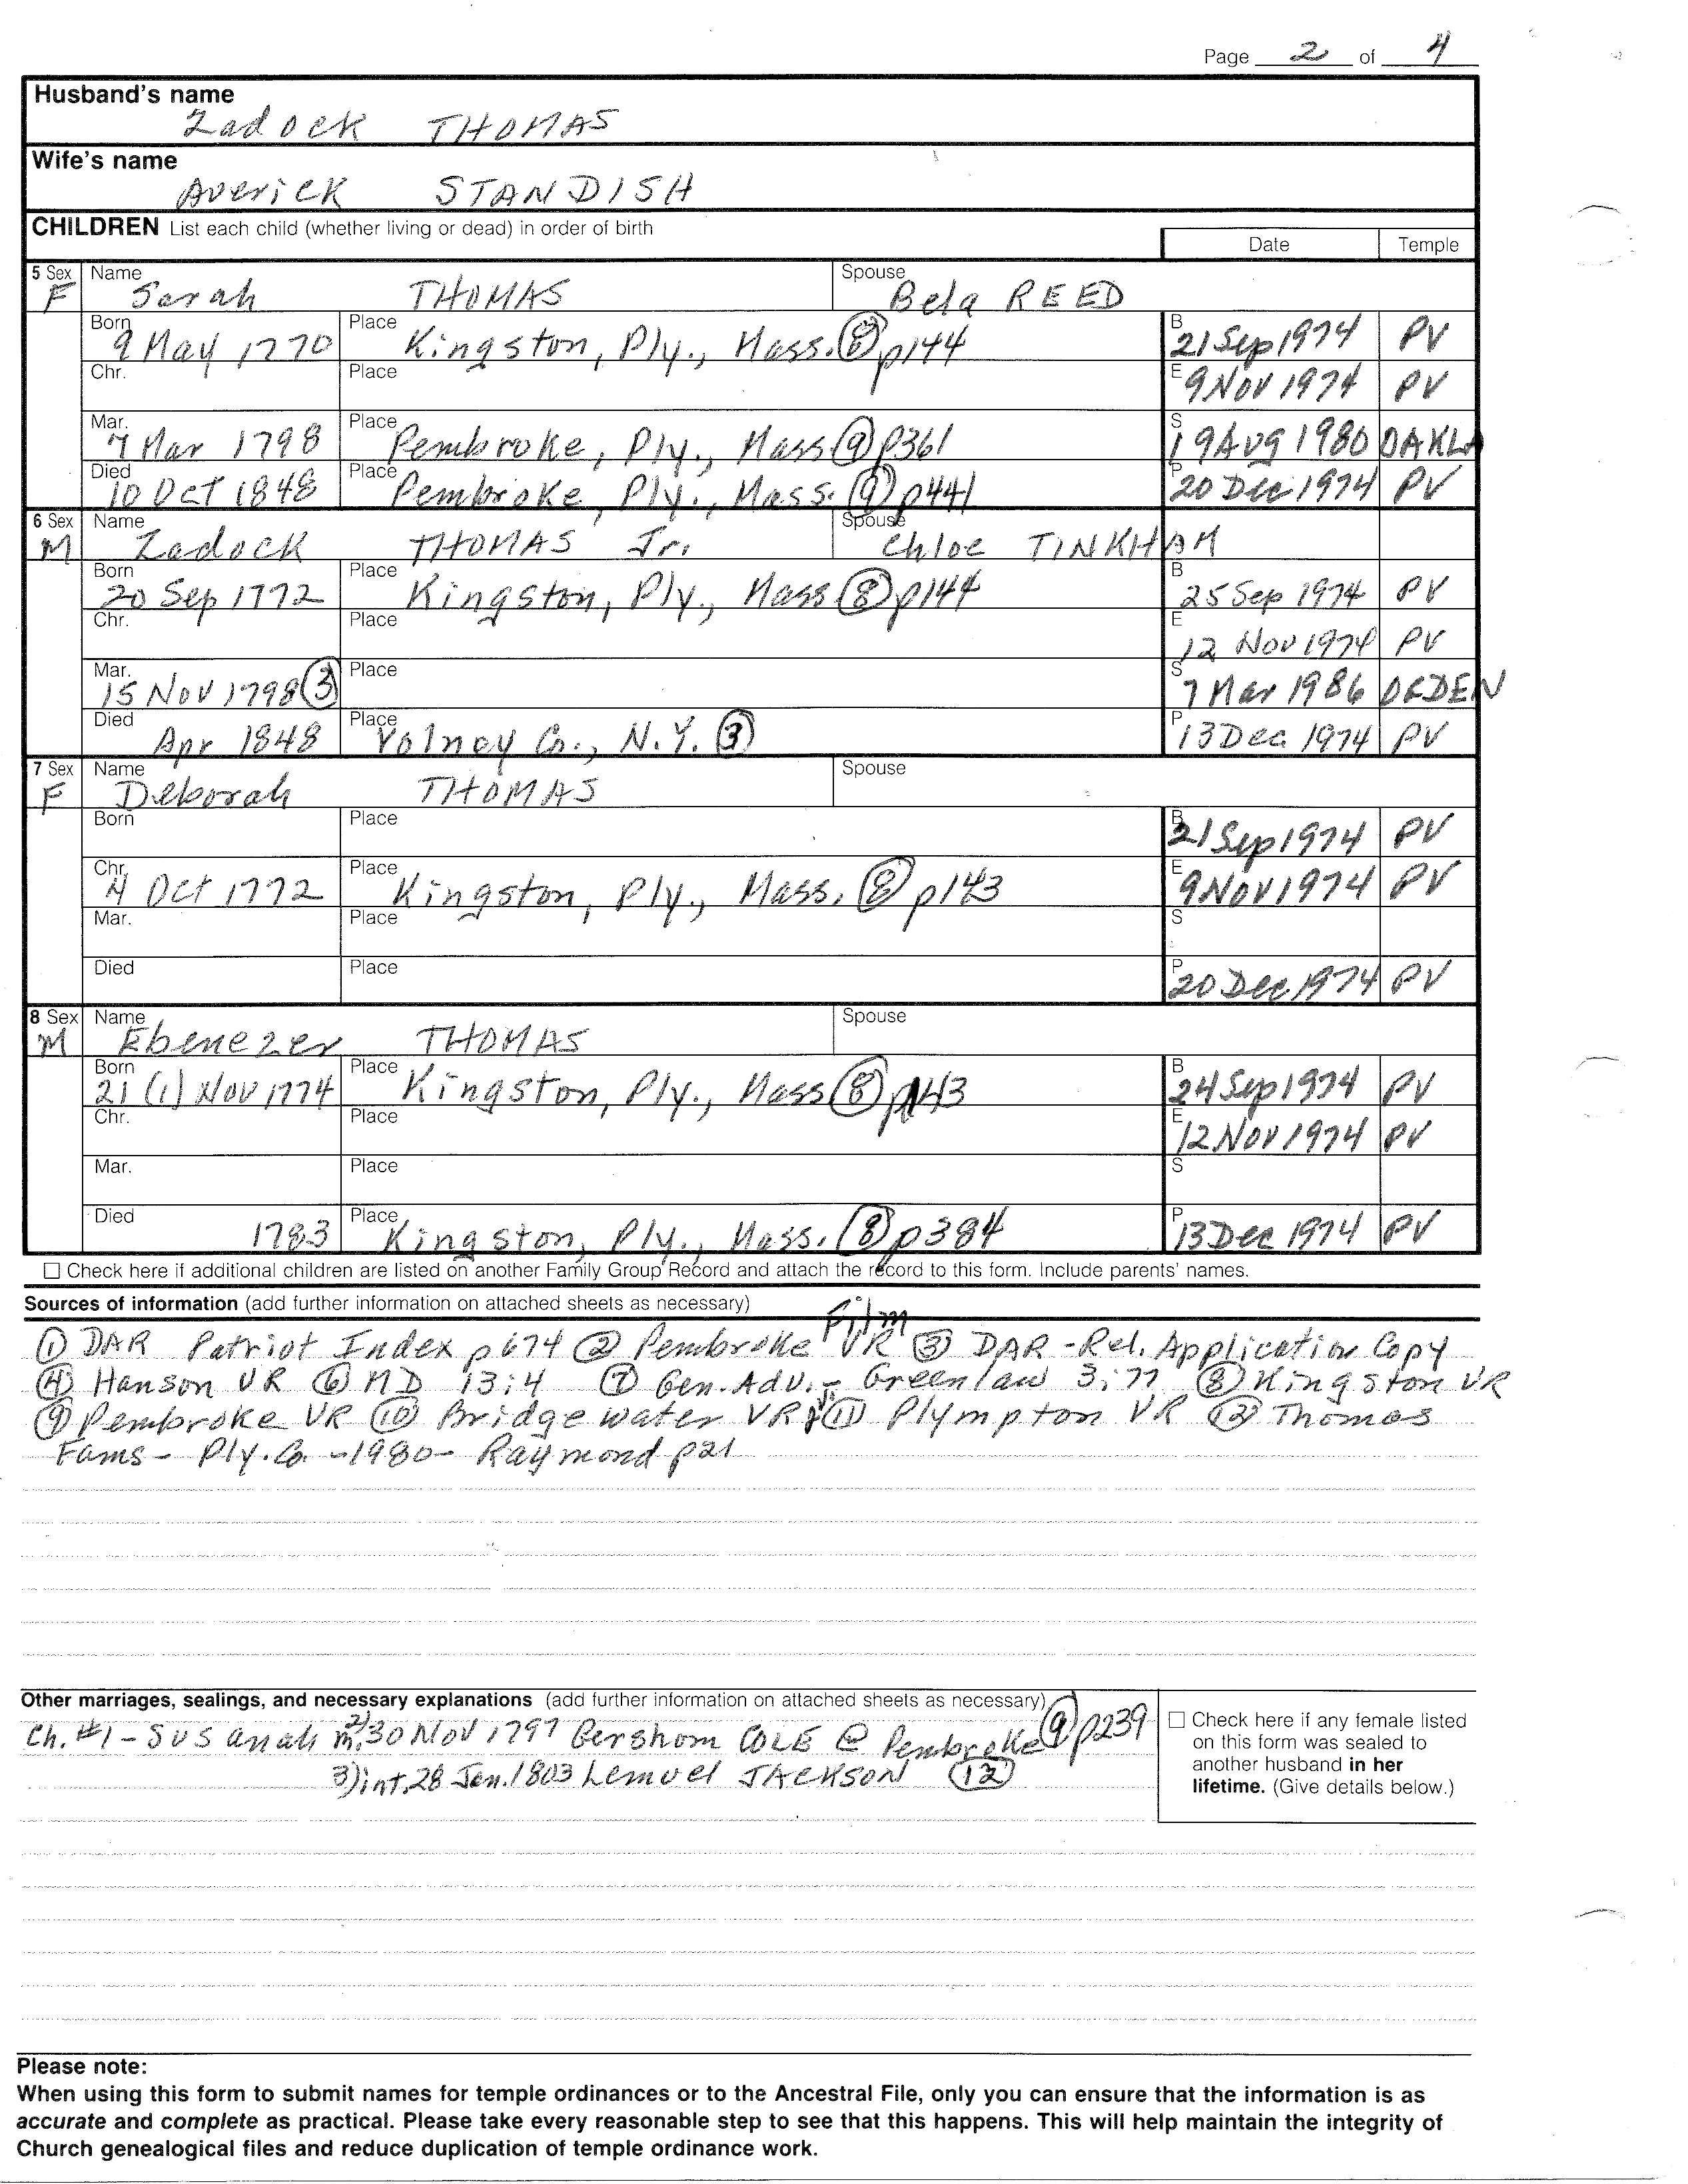 Page 2 of 4
Husband's name
Zadock THOMAS
Wife's name
Averick STANDISH
CHILDREN List each child (whether living or dead) in order of birth
Date Temple
5 Sex Name Spouse
F Sarah THOMAS Bela REED
Born Place B
9 May 1770 Kingston, Ply., Mass. ⑧ p144 21 Sep 1974 PV
Chr. Place E
9 Nov 1974 PV
Mar. Place S
7 Mar 1798 Pembroke, Ply., Mass ⑨ p361 19 Aug 1980 OAKLA
Died Place P
10 Oct 1848 Pembroke, Ply., Mass. ⑨ p441 20 Dec 1974 PV
6 Sex Name Spouse
M Zadock THOMAS Jr. Chloe TINKHAM
Born Place B
20 Sep 1772 Kingston, Ply., Mass ⑧ p144 25 Sep 1974 PV
Chr. Place E
12 Nov 1974 PV
Mar. Place S
15 Nov 1798 ③ 7 Mar 1986 OGDEN
Died Place P
Apr 1848 Volney Co., N.Y. ③ 13 Dec 1974 PV
7 Sex Name Spouse
F Deborah THOMAS
Born Place B
21 Sep 1974 PV
Chr. Place E
4 Oct 1772 Kingston, Ply., Mass. ⑧ p143 9 Nov 1974 PV
Mar. Place S
Died Place P
20 Dec 1974 PV
8 Sex Name Spouse
M Ebenezer THOMAS
Born Place B
21 (1) Nov 1774 Kingston, Ply., Mass ⑧ p143 24 Sep 1974 PV
Chr. Place E
12 Nov 1974 PV
Mar. Place S
Died Place P
1783 Kingston, Ply., Mass. ⑧ p384 13 Dec 1974 PV
☐ Check here if additional children are listed on another Family Group Record and attach the record to this form. Include parents' names.
Sources of information (add further information on attached sheets as necessary)
Film
① DAR Patriot Index p674 ② Pembroke VR ③ DAR -Rel. Application Copy
④ Hanson VR ⑥ MD 13:4 ⑦ Gen. Adv. - Greenlaw 3:77 ⑧ Kingston VR
⑨ Pembroke VR ⑩ Bridgewater VR ⑪ Plympton VR ⑫ Thomas
Fams - Ply. Co. -1980- Raymond p21
Other marriages, sealings, and necessary explanations (add further information on attached sheets as necessary)
Ch. #1 - Susanah m. 2) 30 Nov 1797 Gershom COLE @ Pembroke ⑨ p239
3) int. 28 Jan. 1803 Lemuel JACKSON ⑫
☐ Check here if any female listed
on this form was sealed to
another husband in her
lifetime. (Give details below.)
Please note:
When using this form to submit names for temple ordinances or to the Ancestral File, only you can ensure that the information is as
accurate and complete as practical. Please take every reasonable step to see that this happens. This will help maintain the integrity of
Church genealogical files and reduce duplication of temple ordinance work.